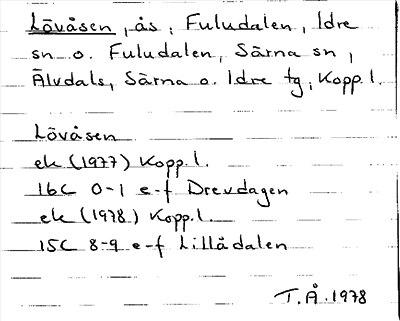 Lövåsen, ås, Fuludalen, Idre
sn o. Fuludalen, Särna sn,
Älvdals, Särna o. Idre tg, Kopp. l.
Lövåsen
ek (1977) Kopp. l.
16C 0-1 e-f Drevdagen
ek (1978) Kopp. l.
15C 8-9 e-f Lillådalen
T.Å. 1978